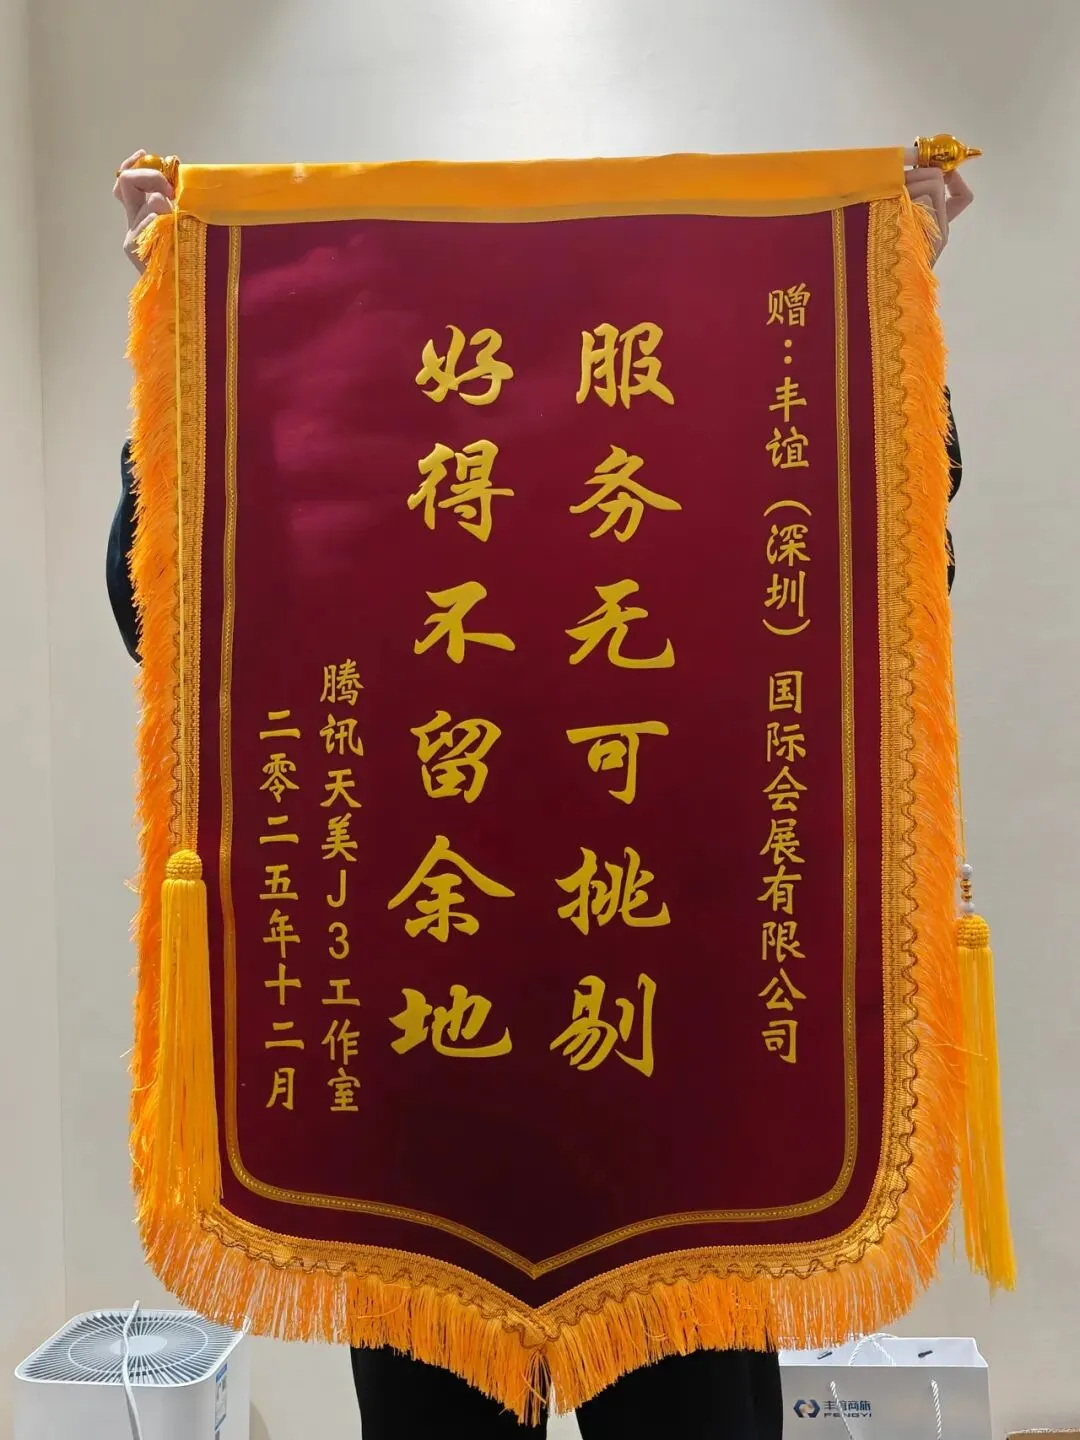 赠：丰谊（深圳）国际会展有限公司
服务无可挑剔
好得不留余地
腾讯天美J3工作室
二零二五年十二月
丰谊商旅
FENGYI